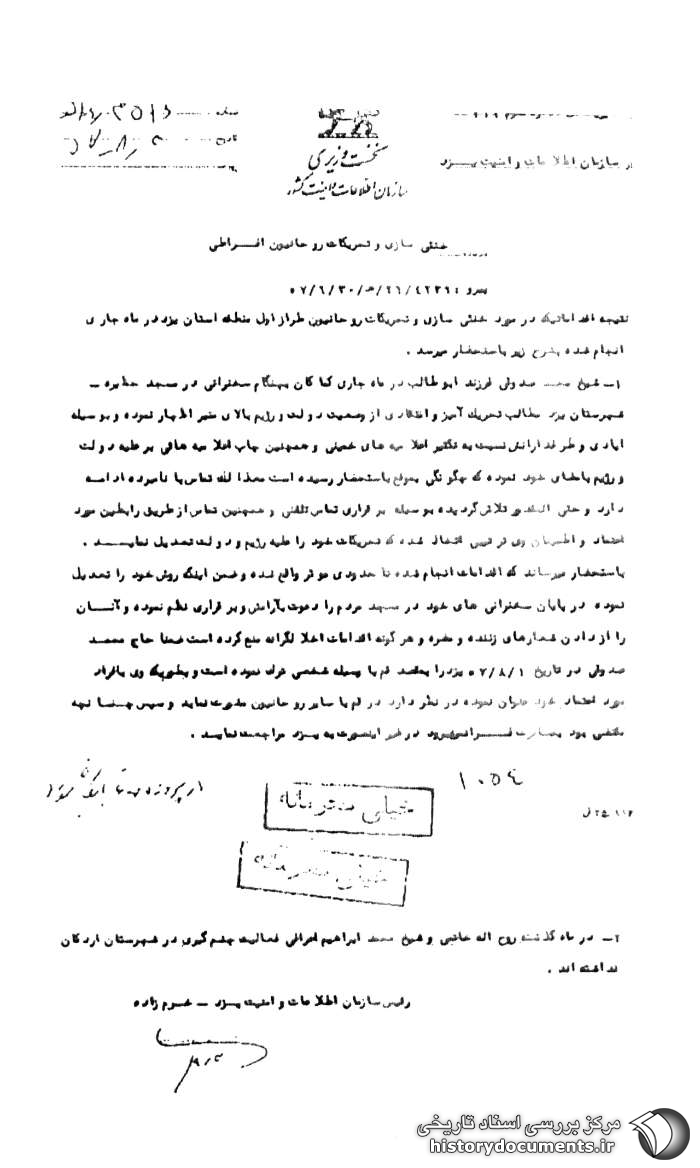 شماره
تاریخ
پیوست
نخست وزیری
سازمان اطلاعات و امنیت کشور
سازمان اطلاعات و امنیت یزد
خنثی سازی و تحریکات روحانیون افراطی
پیرو : ۲۱/۴۲۲۹/هـ ۵۷/۶/۳۰
نتیجه اقداماتیکه در مورد خنثی سازی و تحریکات روحانیون طراز اول منطقه استان یزد در ماه جاری
انجام شده بشرح زیر باستحضار میرسد .
۱ــ شیخ محمد صدوقی فرزند ابوطالب در ماه جاری کماکان بهنگام سخنرانی در مسجد حظیره ــ
شهرستان یزد مطالب تحریک آمیز و انتقادی از وضعیت دولت و رژیم بالای منبر اظهار نموده و بوسیله
ایادی و طرفدارانش نسبت به تکثیر اعلامیه های خمینی و همچنین چاپ اعلامیه هائی بر علیه دولت
و رژیم بامضای خود نموده که چگونگی بموقع باستحضار رسیده است معذالک تماس با نامبرده ادامه
دارد و حتی المقدور تلاش گردیده بوسیله بر قراری تماس تلفنی و همچنین تماس از طریق رابطین مورد
اعتماد و اطمینان وی ترتیبی اتخاذ شده که تحریکات خود را علیه رژیم و دولت تعدیل نمایند .
باستحضار میرساند که اقدامات انجام شده تا حدودی موثر واقع شده و ضمن اینکه روش خود را تعدیل
نموده در پایان سخنرانی های خود در مسجد مردم را دعوت بآرامش و بر قراری نظم نموده و آنسان
را از دادن شعارهای زننده و مضره و هر گونه اقدامات اخلالگرانه منع کرده است ضمنا حاج محمد
صدوقی در تاریخ ۵۷/۸/۱ یزد را بمقصد قم با وسیله شخصی ترک نموده است و بطوریکه وی بافراد
مورد اعتماد خود عنوان نموده در نظر دارد در قم با سایر روحانیون مشورت نماید و سپس چنانچه
مقتضی بود بصارت فرانسه برود در غیر اینصورت به یزد مراجعت نماید .
۱۰۵۴
خیلی محرمانه
خیلی محرمانه
۲ــ در ماه گذشته روح اله خاتمی و شیخ محمد ابراهیم اعرافی فعالیت چشم گیری در شهرستان اردکان
نداشته اند .
رئیس سازمان اطلاعات و امنیت یزد ــ خرم زاده
مرکز بررسی اسناد تاریخی
historydocuments.ir